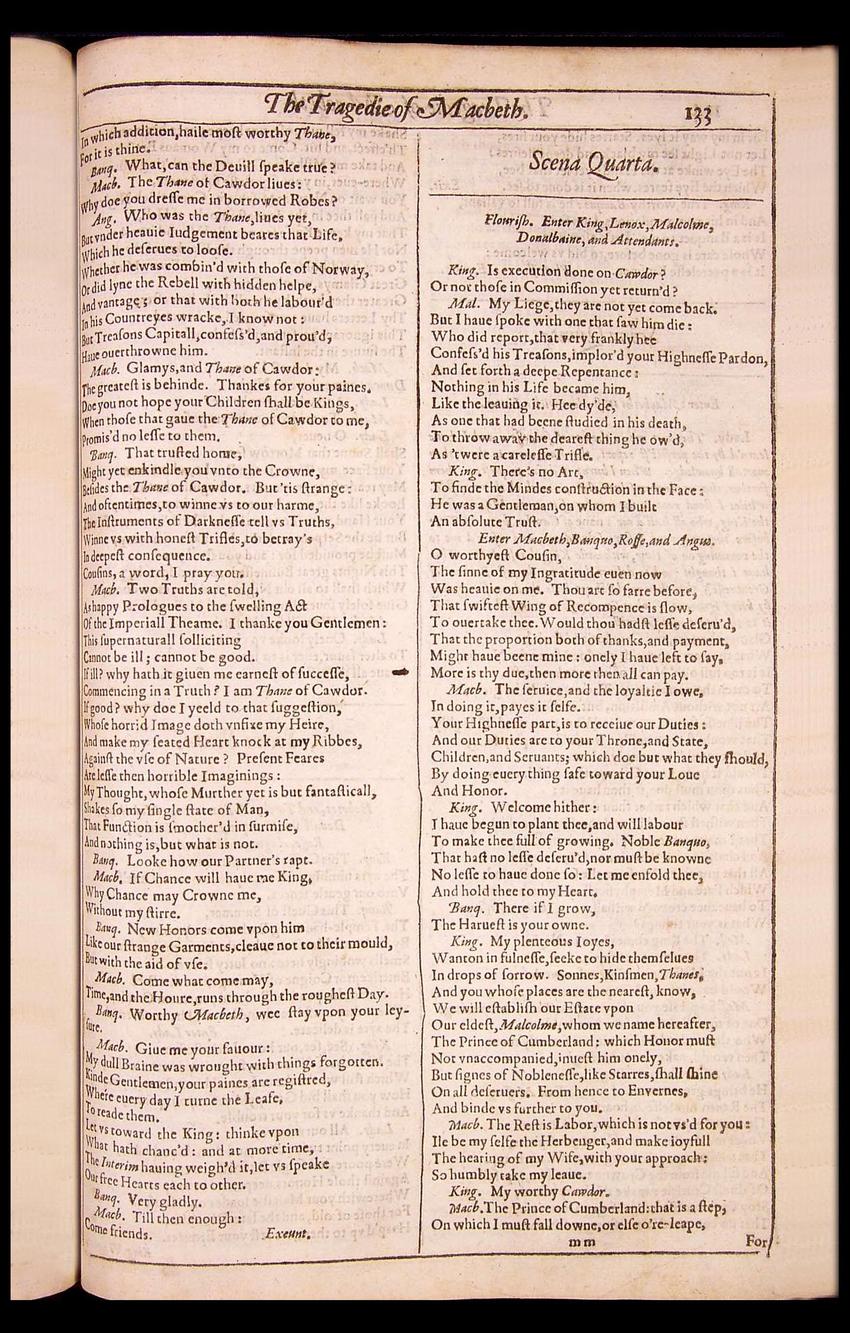 The Tragedie of Macbeth. 133
In which addition, haile moſt worthy Thane,
For it is thine.
Banq. What, can the Deuill ſpeake true?
Macb. The Thane of Cawdor liues:
Why doe you dreſſe me in borrowed Robes?
Ang. Who was the Thane, liues yet,
But vnder heauie Iudgement beares that Life,
Which he deſerues to looſe.
Whether he was combin'd with thoſe of Norway,
Or did lyne the Rebell with hidden helpe,
And vantage; or that with both he labour'd
In his Countreyes wracke, I know not:
But Treaſons Capitall, confeſs'd, and prou'd,
Haue ouerthrowne him.
Macb. Glamys, and Thane of Cawdor:
The greateſt is behinde. Thankes for your paines.
Doe you not hope your Children ſhall be Kings,
When thoſe that gaue the Thane of Cawdor to me,
Promis'd no leſſe to them.
Banq. That truſted home,
Might yet enkindle you vnto the Crowne,
Beſides the Thane of Cawdor. But 'tis ſtrange:
And oftentimes, to winne vs to our harme,
The Inſtruments of Darkneſſe tell vs Truths,
Winne vs with honeſt Trifles, to betray's
In deepeſt conſequence.
Couſins, a word, I pray you.
Macb. Two Truths are told,
As happy Prologues to the ſwelling Act
Of the Imperiall Theame. I thanke you Gentlemen:
This ſupernaturall ſolliciting
Cannot be ill; cannot be good.
If ill? why hath it giuen me earneſt of ſucceſſe,
Commencing in a Truth? I am Thane of Cawdor.
If good? why doe I yeeld to that ſuggeſtion,
Whoſe horrid Image doth vnfixe my Heire,
And make my ſeated Heart knock at my Ribbes,
Againſt the vſe of Nature? Preſent Feares
Are leſſe then horrible Imaginings:
My Thought, whoſe Murther yet is but fantaſticall,
Shakes ſo my ſingle ſtate of Man,
That Function is ſmother'd in ſurmiſe,
And nothing is, but what is not.
Banq. Looke how our Partner's rapt.
Macb. If Chance will haue me King,
Why Chance may Crowne me,
Without my ſtirre.
Banq. New Honors come vpon him
Like our ſtrange Garments, cleaue not to their mould,
But with the aid of vſe.
Macb. Come what come may,
Time, and the Houre, runs through the rougheſt Day.
Banq. Worthy Macbeth, wee ſtay vpon your ley-
ſure.
Macb. Giue me your fauour:
My dull Braine was wrought with things forgotten.
Kinde Gentlemen, your paines are regiſtred,
Where euery day I turne the Leafe,
To reade them.
Let vs toward the King: thinke vpon
What hath chanc'd: and at more time,
The Interim hauing weigh'd it, let vs ſpeake
Our free Hearts each to other.
Banq. Very gladly.
Macb. Till then enough:
Come friends. Exeunt.
Scena Quarta.
Flouriſh. Enter King, Lenox, Malcolme,
Donalbaine, and Attendants.
King. Is execution done on Cawdor?
Or not thoſe in Commiſſion yet return'd?
Mal. My Liege, they are not yet come back.
But I haue ſpoke with one that ſaw him die:
Who did report, that very frankly hee
Confeſs'd his Treaſons, implor'd your Highneſſe Pardon,
And ſet forth a deepe Repentance:
Nothing in his Life became him,
Like the leauing it. Hee dy'de,
As one that had beene ſtudied in his death,
To throw away the deareſt thing he ow'd,
As 'twere a careleſſe Trifle.
King. There's no Art,
To finde the Mindes conſtruction in the Face:
He was a Gentleman, on whom I built
An abſolute Truſt.
Enter Macbeth, Banquo, Roſſe, and Angus.
O worthyeſt Couſin,
The ſinne of my Ingratitude euen now
Was heauie on me. Thou art ſo farre before,
That ſwifteſt Wing of Recompence is ſlow,
To ouertake thee. Would thou hadſt leſſe deſeru'd,
That the proportion both of thanks, and payment,
Might haue beene mine: onely I haue left to ſay,
More is thy due, then more then all can pay.
Macb. The ſeruice, and the loyaltie I owe,
In doing it, payes it ſelfe.
Your Highneſſe part, is to receiue our Duties:
And our Duties are to your Throne, and State,
Children, and Seruants; which doe but what they ſhould,
By doing euery thing ſafe toward your Loue
And Honor.
King. Welcome hither:
I haue begun to plant thee, and will labour
To make thee full of growing. Noble Banquo,
That haſt no leſſe deſeru'd, nor muſt be knowne
No leſſe to haue done ſo: Let me enfold thee,
And hold thee to my Heart.
Banq. There if I grow,
The Harueſt is your owne.
King. My plenteous Ioyes,
Wanton in fulneſſe, ſeeke to hide themſelues
In drops of ſorrow. Sonnes, Kinſmen, Thanes,
And you whoſe places are the neareſt, know,
We will eſtabliſh our Eſtate vpon
Our eldeſt, Malcolme, whom we name hereafter,
The Prince of Cumberland: which Honor muſt
Not vnaccompanied, inueſt him onely,
But ſignes of Nobleneſſe, like Starres, ſhall ſhine
On all deſeruers. From hence to Envernes,
And binde vs further to you.
Macb. The Reſt is Labor, which is not vs'd for you:
Ile be my ſelfe the Herbenger, and make ioyfull
The hearing of my Wife, with your approach:
So humbly take my leaue.
King. My worthy Cawdor.
Macb. The Prince of Cumberland: that is a ſtep,
On which I muſt fall downe, or elſe o're-leape,
mm For